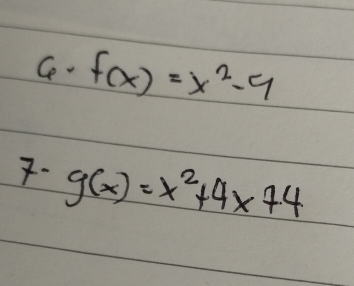 6. f(x) = x² - 9
7. g(x) = x² + 4x + 4